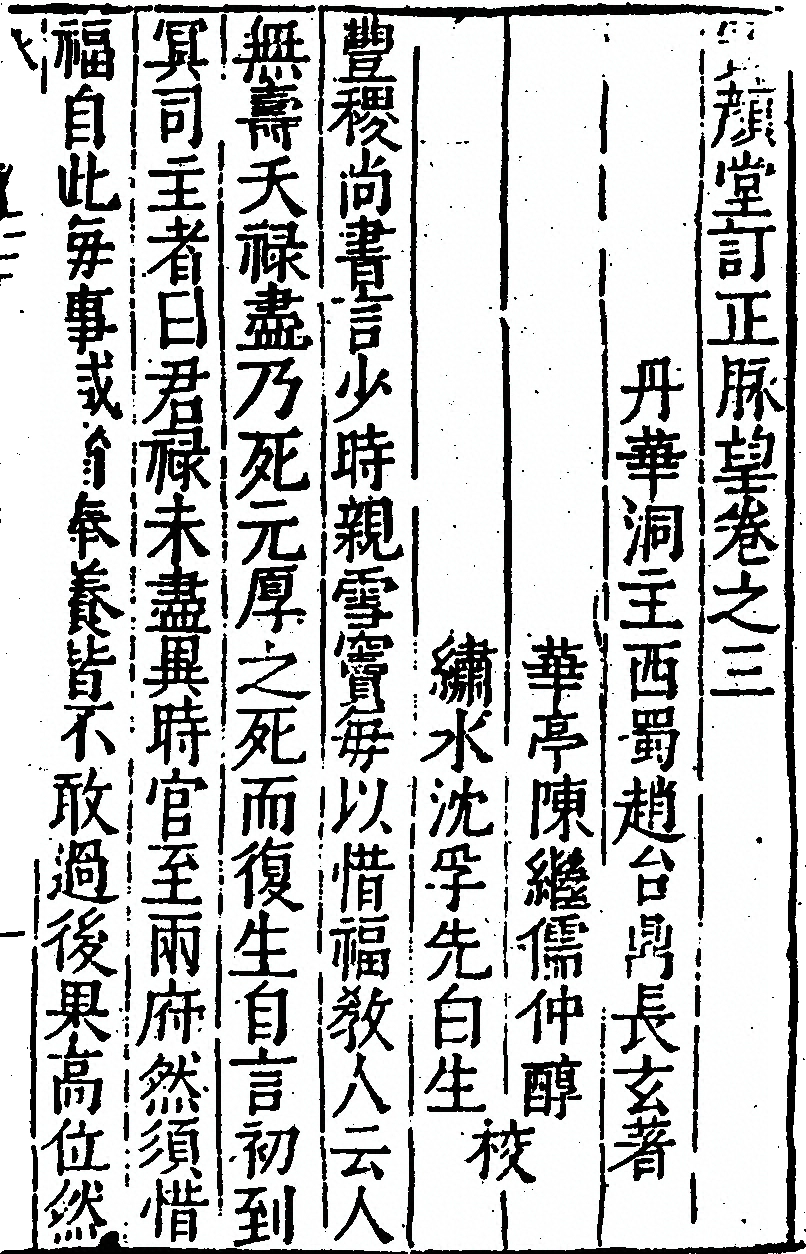 顏堂訂正脉望卷之三
丹華洞主西蜀趙台鼎長玄著
華亭陳繼儒仲醇
繡水沈孚先白生
校
豐稷尚書言少時親雪竇每以惜福教人云人
無壽夭祿盡乃死元厚之死而復生自言初到
冥司主者曰君祿未盡異時官至兩府然須惜
福自此每事或奉養皆不敢過後果高位然